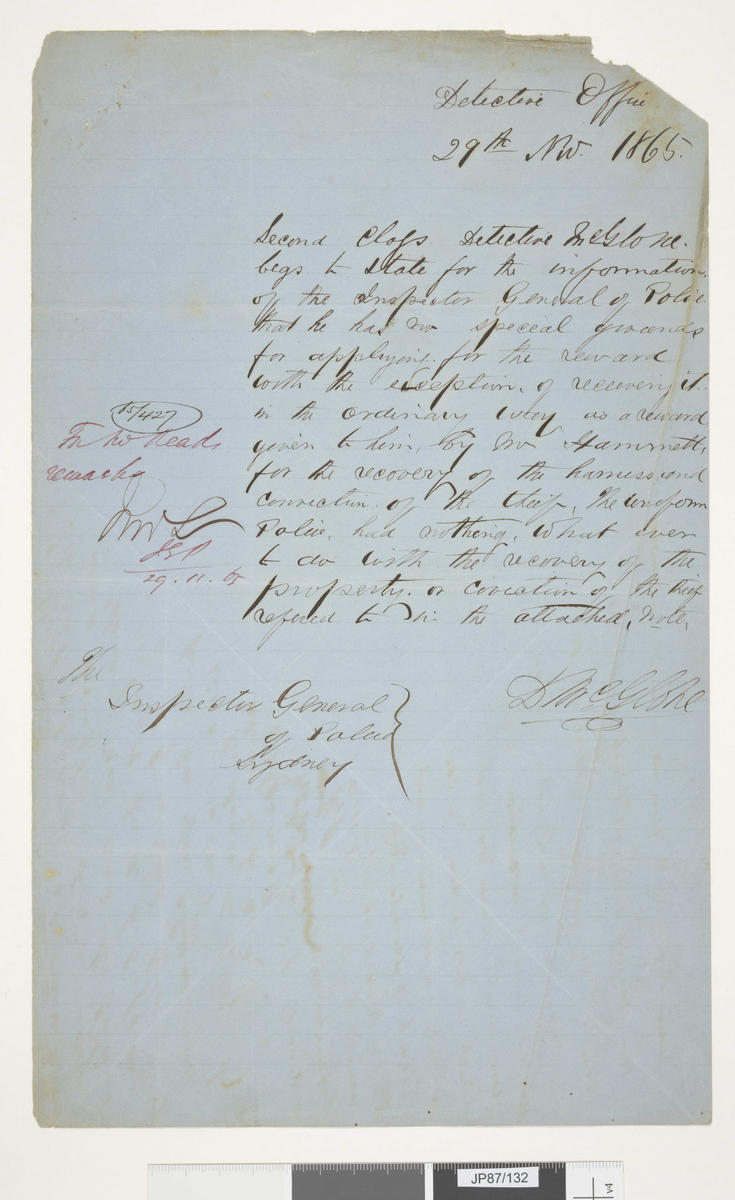 Detective Office
29th Nov. 1865.
Second Class Detective McGlone.
begs to state for the information
of the Inspector General of Police
that he has no special grounds
for applying for the reward
with the exception, of receiveing it
in the ordinary way as a reward
given to him, by Mr Hammett,
for the recovery of the harness and
conviction of the theif, The uniform
Police, had nothing, what ever
to do with the recovery of the
property. or coviction of the thief
refered to in the attached, note,
D McGlone
The
Inspector General
of Police
Sydney
65/427
For Mr Reads
remarks
29.11.65
JP87/132
v4